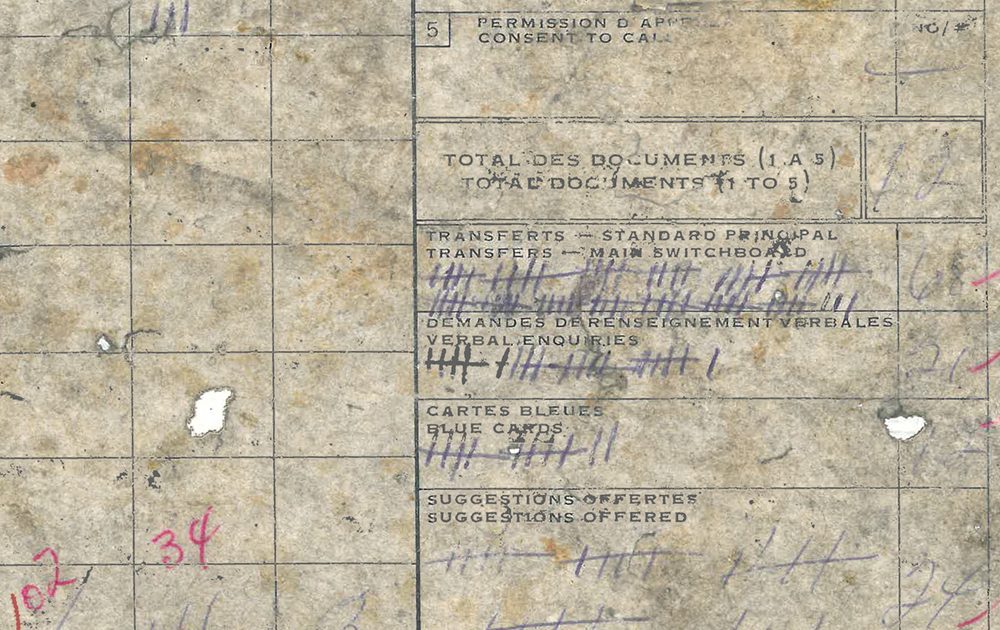 5 PERMISSION D'APPE
CONSENT TO CALL
NO/#
TOTAL DES DOCUMENTS (1 A 5)
TOTAL DOCUMENTS (1 TO 5)
12
TRANSFERTS — STANDARD PRINCIPAL
TRANSFERS — MAIN SWITCHBOARD
68
DEMANDES DE RENSEIGNEMENT VERBALES
VERBAL ENQUIRIES
21
CARTES BLEUES
BLUE CARDS
12
SUGGESTIONS OFFERTES
SUGGESTIONS OFFERED
34
102
24